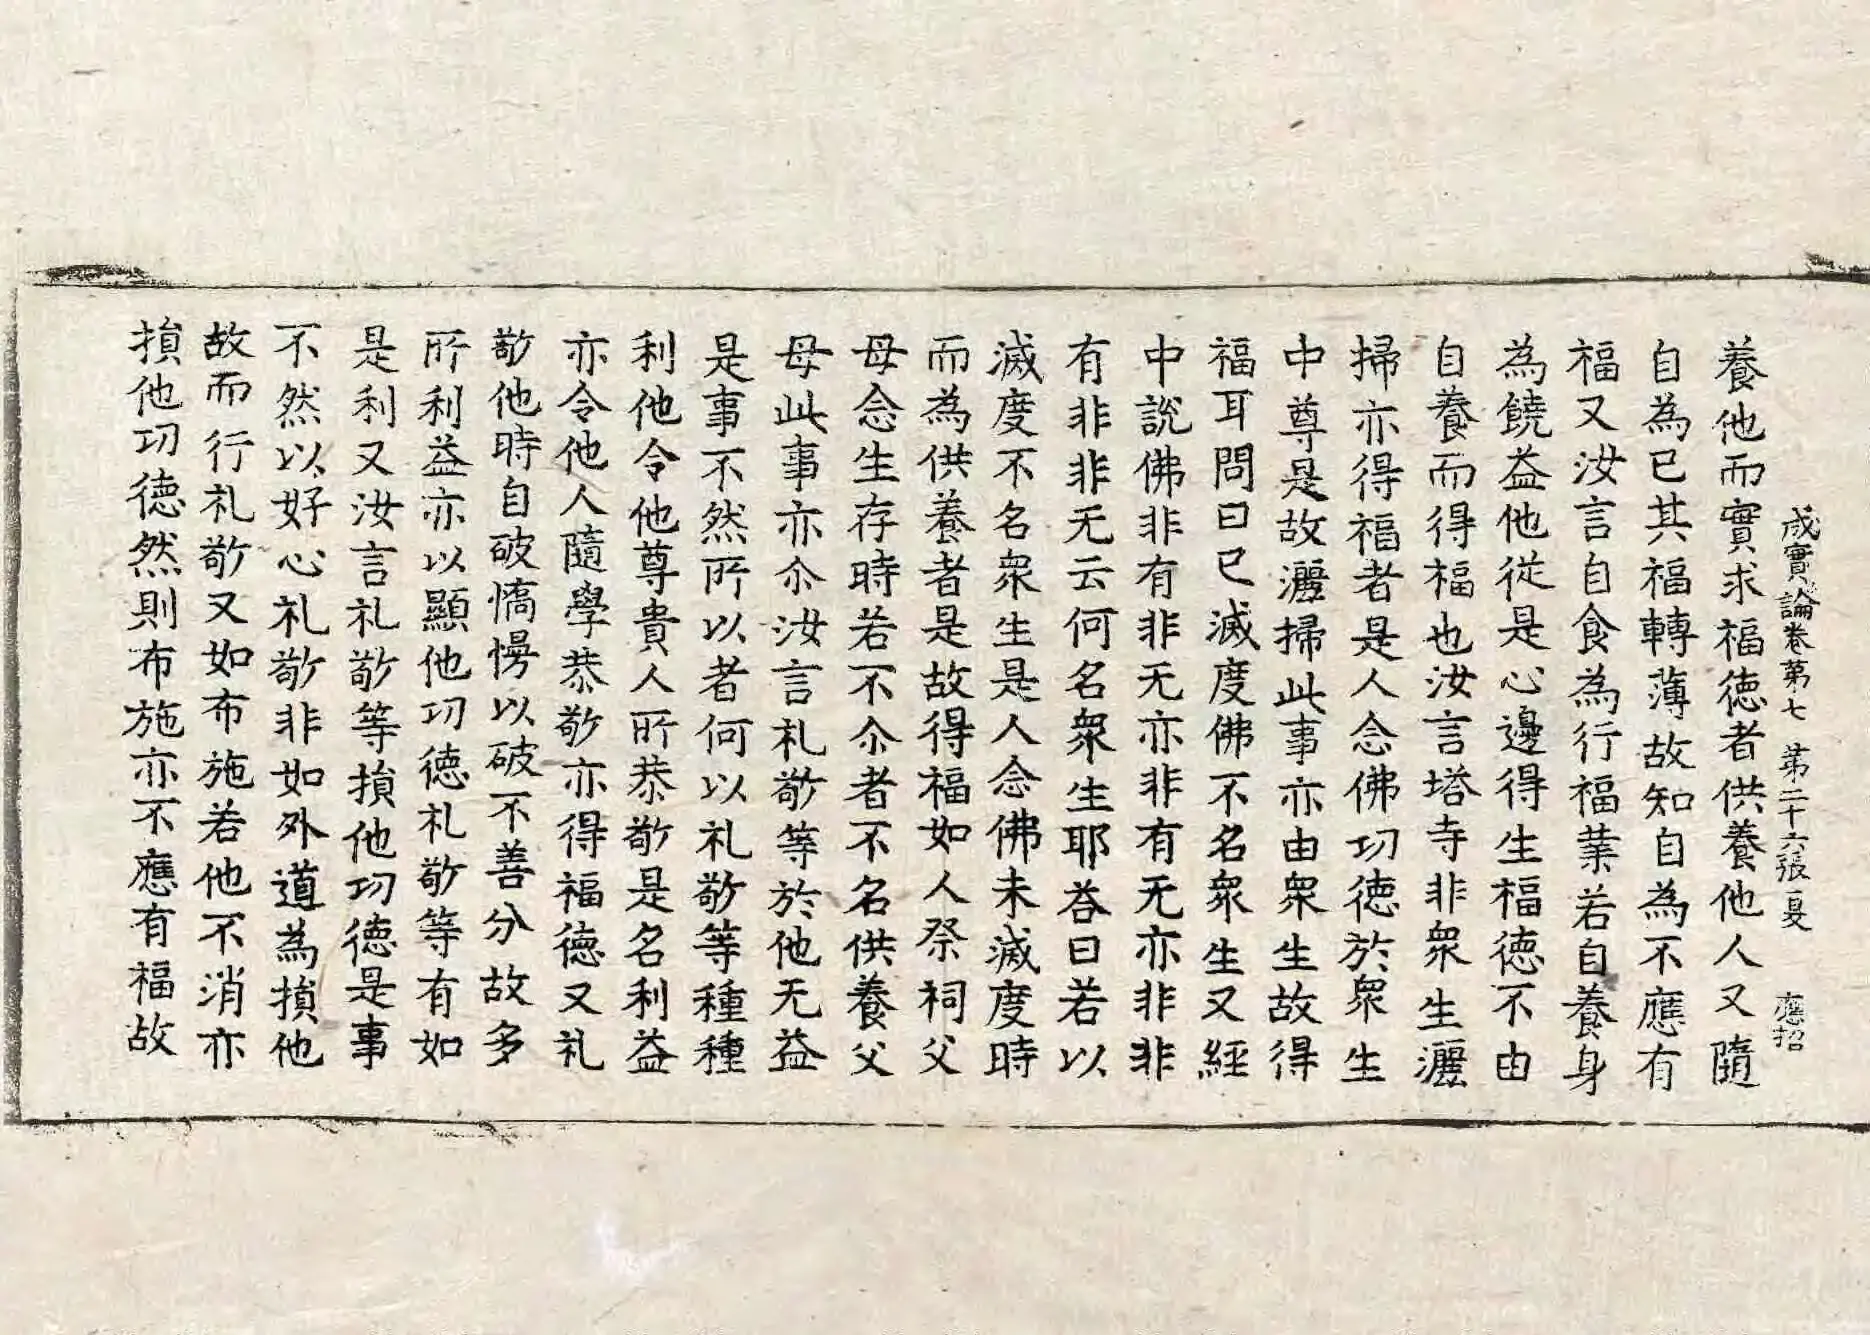 成實論卷第七 第二十六張 夏 應招
養他而實求福德者供養他人又隨
自為已其福轉薄故知自為不應有
福又汝言自食為行福業若自養身
為饒益他從是心邊得生福德不由
自養而得福也汝言塔寺非衆生灑
掃亦得福者是人念佛功德於衆生
中尊是故灑掃此事亦由衆生故得
福耳問曰已滅度佛不名衆生又經
中說佛非有非无亦非有无亦非非
有非非无云何名衆生耶荅曰若以
滅度不名衆生是人念佛未滅度時
而為供養者是故得福如人祭祠父
母念生存時若不尒者不名供養父
母此事亦尒汝言礼敬等於他无益
是事不然所以者何以礼敬等種種
利他令他尊貴人所恭敬是名利益
亦令他人隨學恭敬亦得福德又礼
敬他時自破憍慢以破不善分故多
所利益亦以顯他功德礼敬等有如
是利又汝言礼敬等損他功德是事
不然以好心礼敬非如外道為損他
故而行礼敬又如布施若他不消亦
損他功德然則布施亦不應有福故